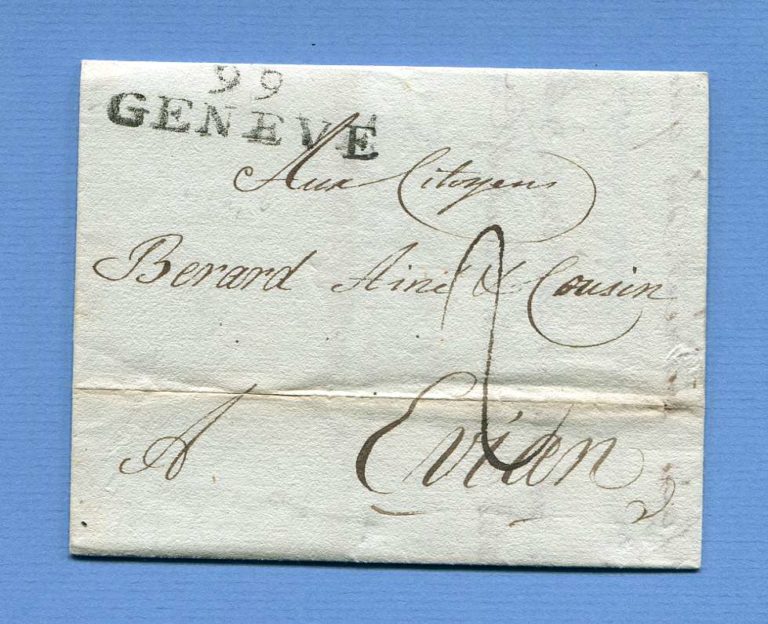 99
GENEVE
Aux Citoyens
Berard Ainé & Cousin
2
A Evian